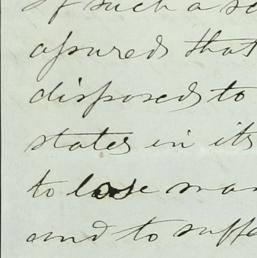 If such a se
assured that
disposed to
states in its
to lose man
and to suffe